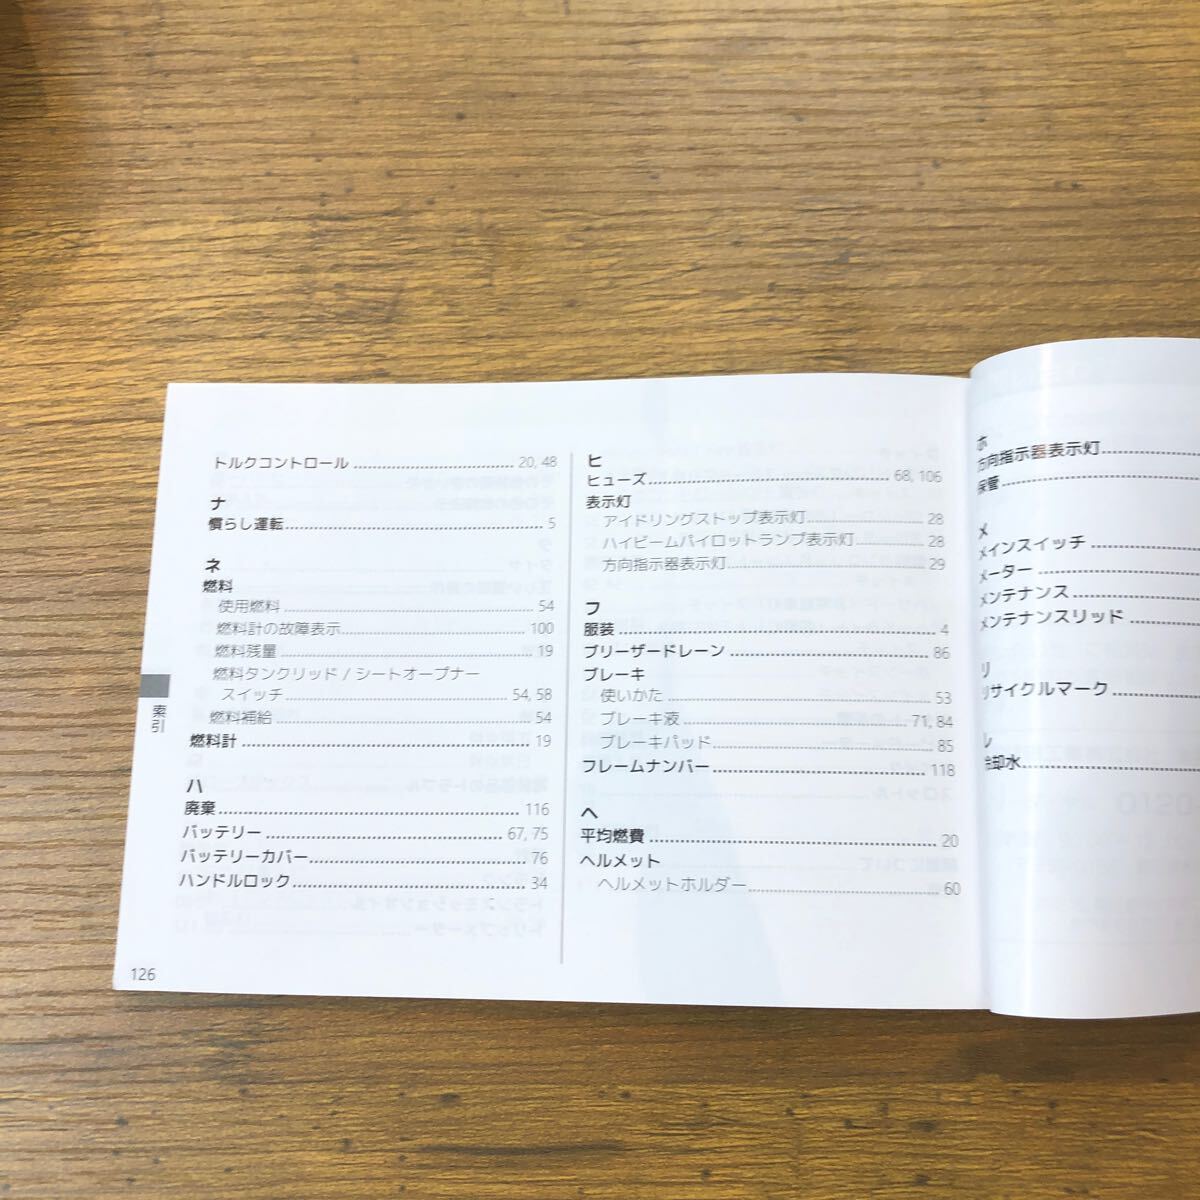 トルクコントロール 20, 48
ナ
慣らし運転 5
ネ
燃料
使用燃料 54
燃料計の故障表示 100
燃料残量 19
燃料タンクリッド / シートオープナー
スイッチ 54, 58
燃料補給 54
燃料計 19
ハ
廃棄 116
バッテリー 67, 75
バッテリーカバー 76
ハンドルロック 34
索引
126
ヒ
ヒューズ 68, 106
表示灯
アイドリングストップ表示灯 28
ハイビームパイロットランプ表示灯 28
方向指示器表示灯 29
フ
服装 4
ブリーザードレーン 86
ブレーキ
使いかた 53
ブレーキ液 71, 84
ブレーキパッド 85
フレームナンバー 118
ヘ
平均燃費 20
ヘルメット
ヘルメットホルダー 60
ホ
方向指示器表示灯
保管
メ
メインスイッチ
メーター
メンテナンス
メンテナンスリッド
リ
リサイクルマーク
レ
冷却水